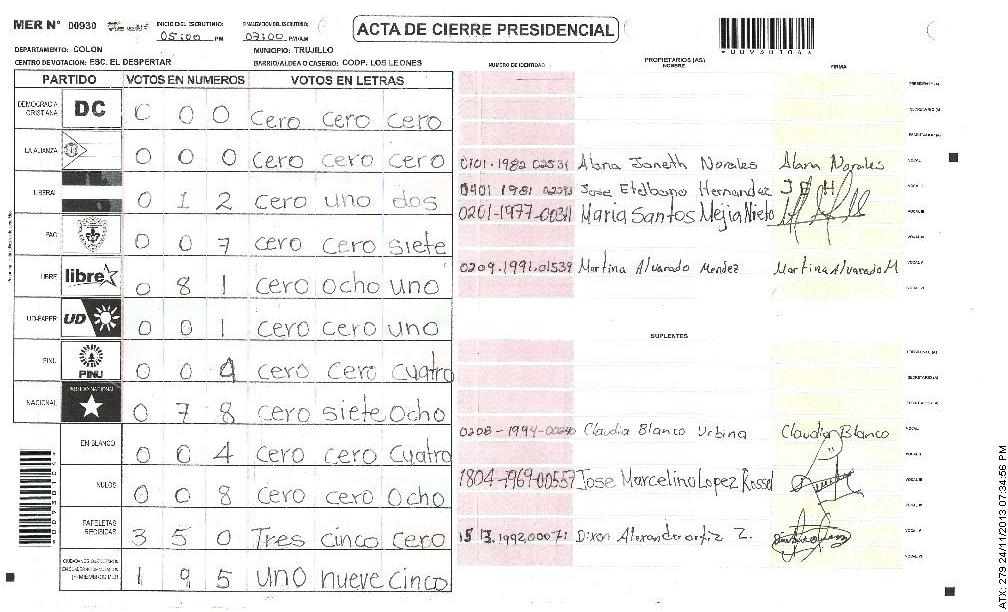 MER N° 00930 INICIO DEL ESCRUTINIO: 05:00 PM FINALIZACION DEL ESCRUTINIO: 07:00 PM/AM
ACTA DE CIERRE PRESIDENCIAL
*00930104*
DEPARTAMENTO: COLON MUNICIPIO: TRUJILLO
CENTRO DE VOTACION: ESC. EL DESPERTAR BARRIO/ALDEA O CASERIO: COOP. LOS LEONES
PARTIDO VOTOS EN NUMEROS VOTOS EN LETRAS
DEMOCRACIA CRISTIANA DC 0 0 0 cero cero cero
LA ALIANZA 0 0 0 cero cero cero
LIBERAL 0 1 2 cero uno dos
PAC 0 0 7 cero cero siete
LIBRE libre 0 8 1 cero ocho uno
UD-FAPER UD 0 0 1 cero cero uno
PINU PINU 0 0 4 cero cero cuatro
NACIONAL PARTIDO NACIONAL 0 7 8 cero siete ocho
EN BLANCO 0 0 4 cero cero cuatro
NULOS 0 0 8 cero cero ocho
PAPELETAS RECIBIDAS 3 5 0 Tres cinco cero
1 9 5 uno nueve cinco
NUMERO DE IDENTIDAD PROPIETARIOS (AS) NOMBRE FIRMA
PRESIDENTE (A)
SECRETARIO (A)
ESCRUTADOR (A)
0101-1982 02531 Alana Janeth Norales Alana Norales VOCAL I
0401 1981 Jose Etelbano Hernandez J E H VOCAL II
0201-1977-00311 Maria Santos Mejia Nieto VOCAL III
VOCAL IV
0209-1991-01539 Martina Alvarado Mendez Martina Alvarado M VOCAL V
VOCAL VI
SUPLENTES
PRESIDENTE (A)
SECRETARIO (A)
ESCRUTADOR (A)
0208-1994-00240 Claudia Blanco Urbina Claudia Blanco VOCAL I
VOCAL II
1804-1969-00557 Jose Marcelino Lopez Rossel VOCAL III
VOCAL IV
Dixon Alexander ortiz Z. VOCAL V
VOCAL VI
*00930104*
ATX: 279 24/11/2013 07:34:56 PM